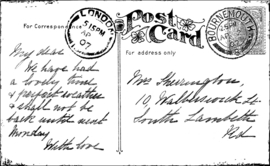 LONDON
5.15PM
AP
07
Post Card
BOURNEMOUTH
AP
For Correspondence
For address only
My dear
We have had
a lovely time
& perfect weather
& shall not be
back until next
Monday
With love
Mrs Sherrington,
10, Walberswick St.
South Lambeth
Rd